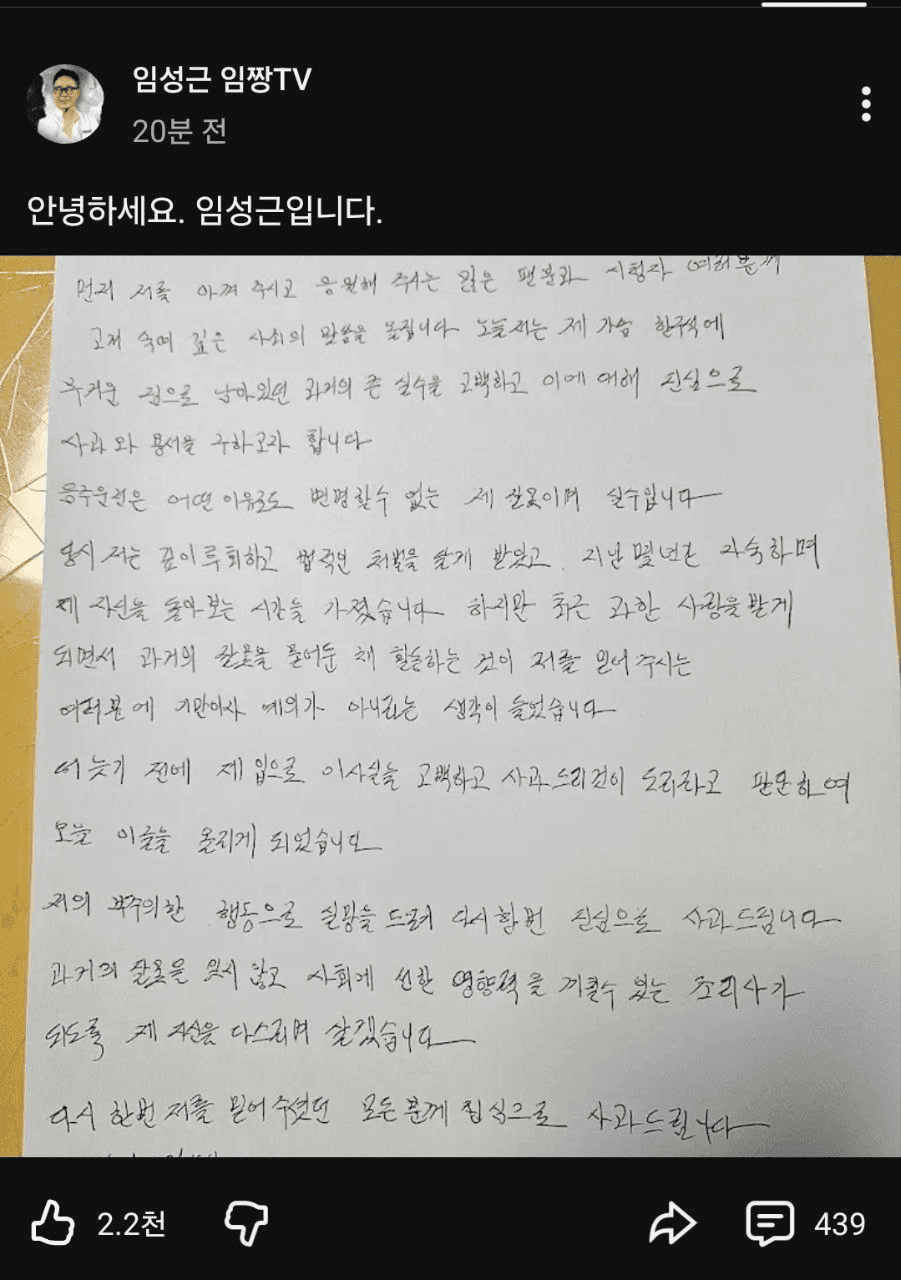 임성근 임짱TV
20분 전
안녕하세요. 임성근입니다.
먼저 저를 아껴 주시고 응원해 주시는 많은 팬분과 시청자 여러분께
고개 숙여 깊은 사죄의 말씀을 올립니다 오늘 저는 제 가슴 한구석에
무거운 짐으로 남아있던 과거의 큰 실수를 고백하고 이에 대해 진심으로
사과와 용서를 구하고자 합니다
음주운전은 어떤 이유로도 변명할수 없는 제 잘못이며 실수입니다
당시 저는 깊이 후회하고 법적인 처벌을 달게 받았고, 지난 몇년간 자숙하며
제 자신을 돌아보는 시간을 가졌습니다 하지만 최근 과한 사랑을 받게
되면서 과거의 잘못을 묻어둔 채 활동하는 것이 저를 믿어주시는
여러분에 기만이자 예의가 아니라는 생각이 들었습니다
더 늦기 전에 제 입으로 이사실을 고백하고 사과드리것이 도리라고 판단하여
오늘 이글을 올리게 되었습니다
저의 부주의한 행동으로 실망을 드려 다시한번 진심으로 사과드립니다
과거의 잘못을 잊지 않고 사회에 선한 영향력을 끼칠수 있는 조리사가
되도록 제 자신을 다스리며 살겠습니다
다시 한번 저를 믿어 주셨던 모든 분께 진심으로 사과드립니다
2.2천
439